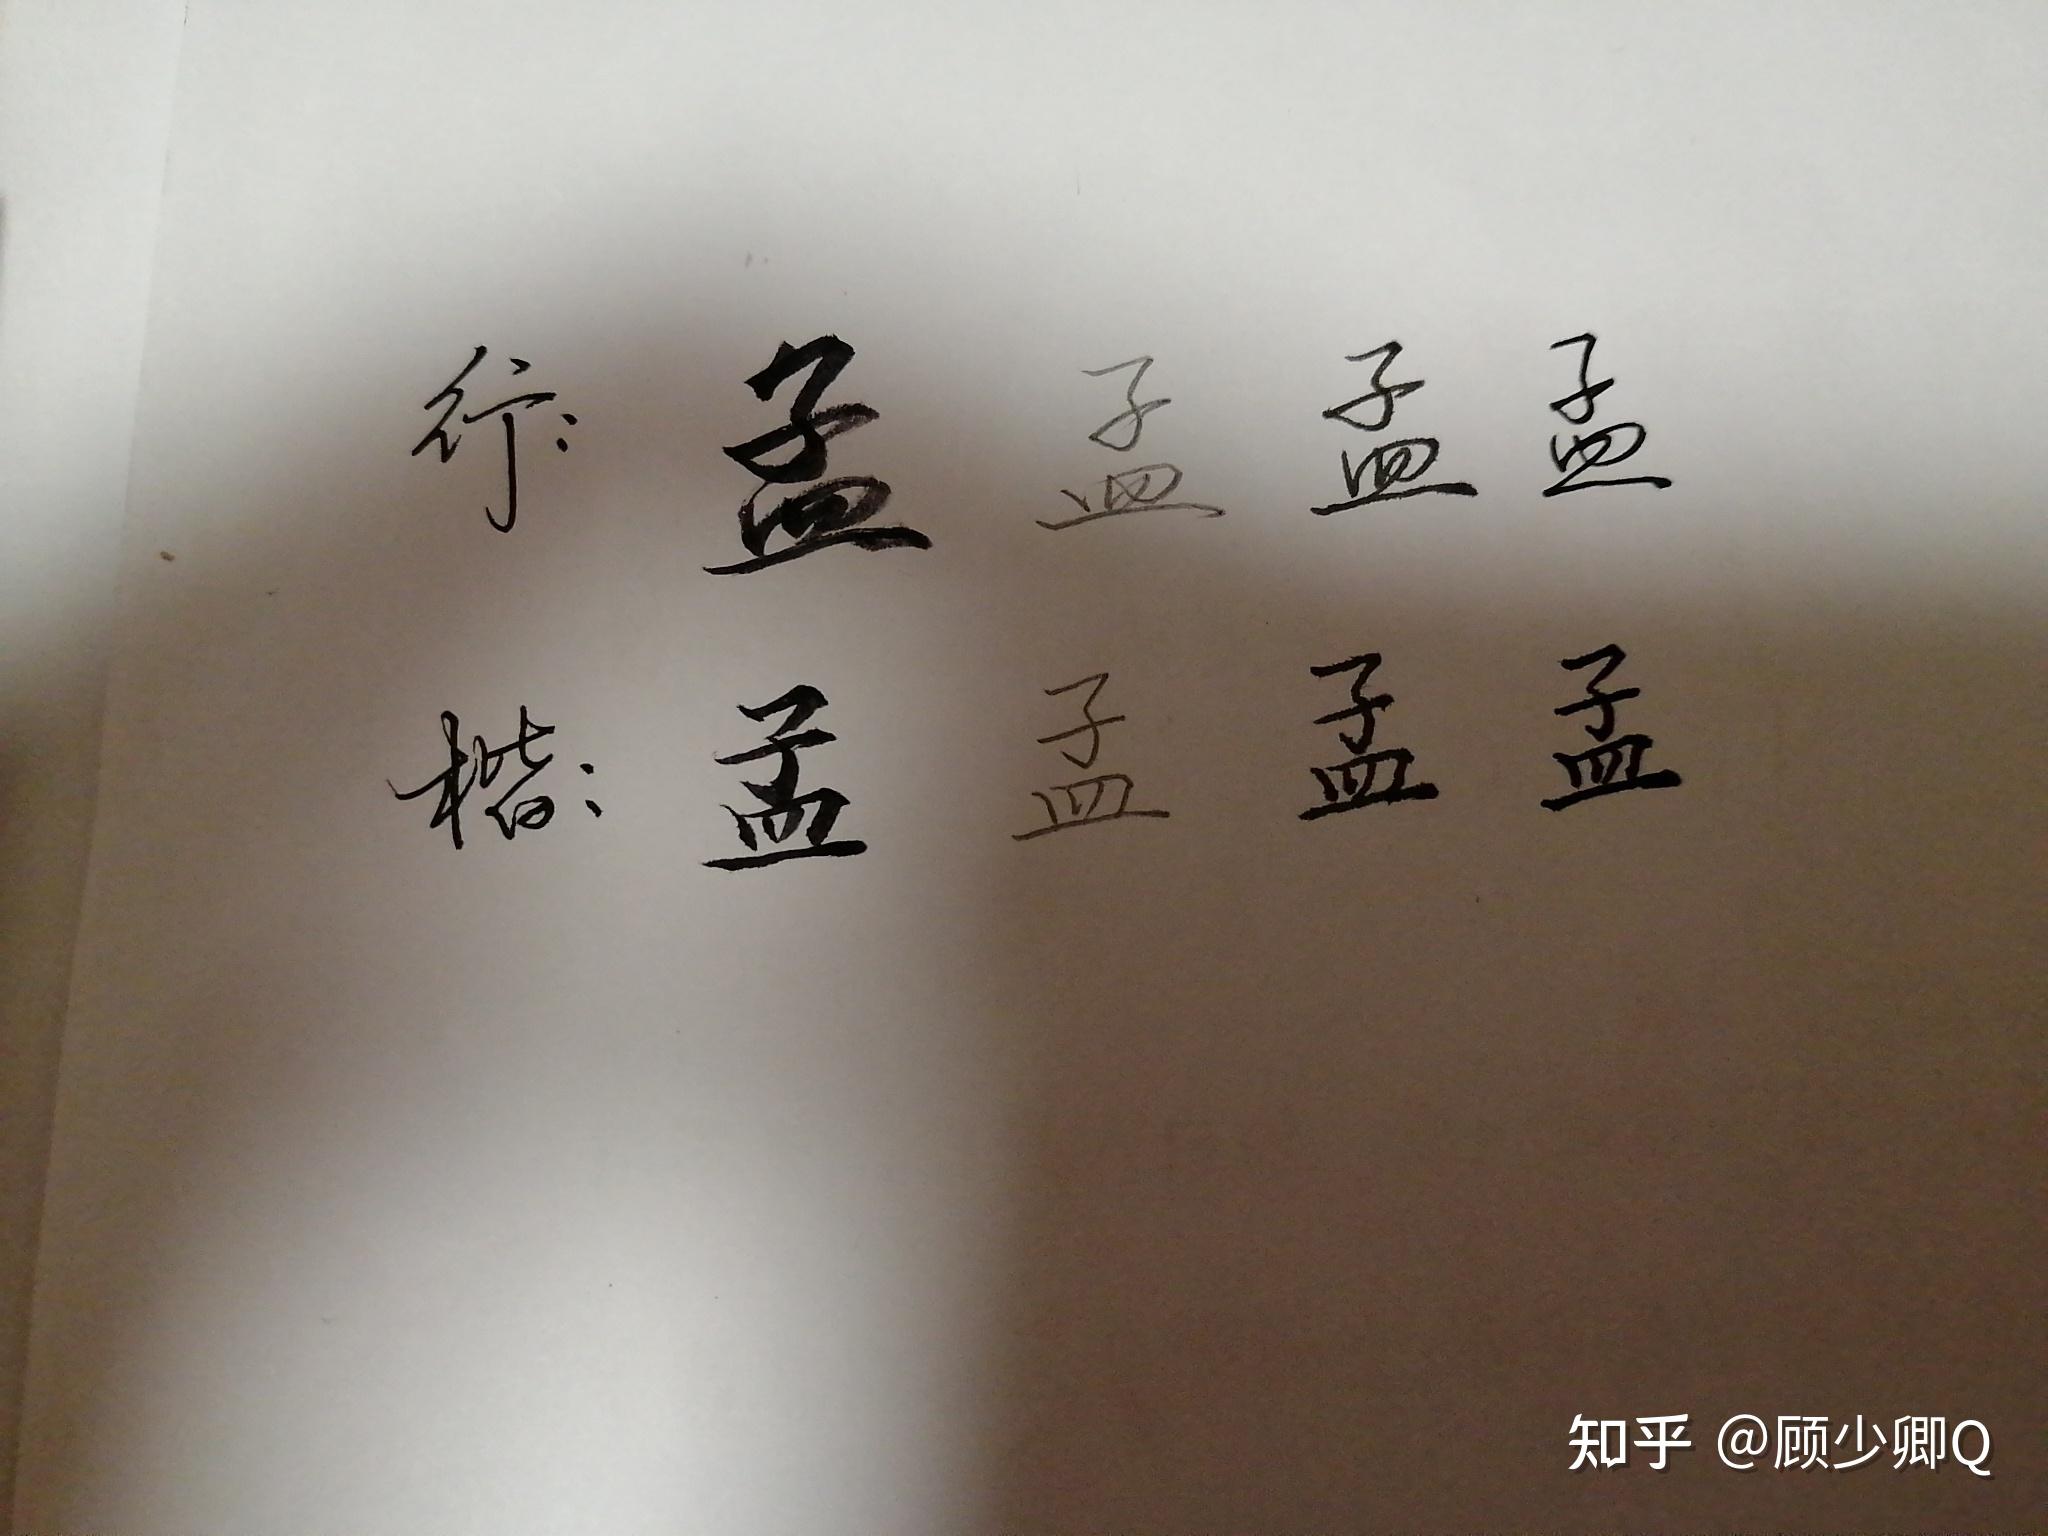 行: 孟 孟 孟 孟
楷: 孟 孟 孟 孟
知乎 @顾少卿Q